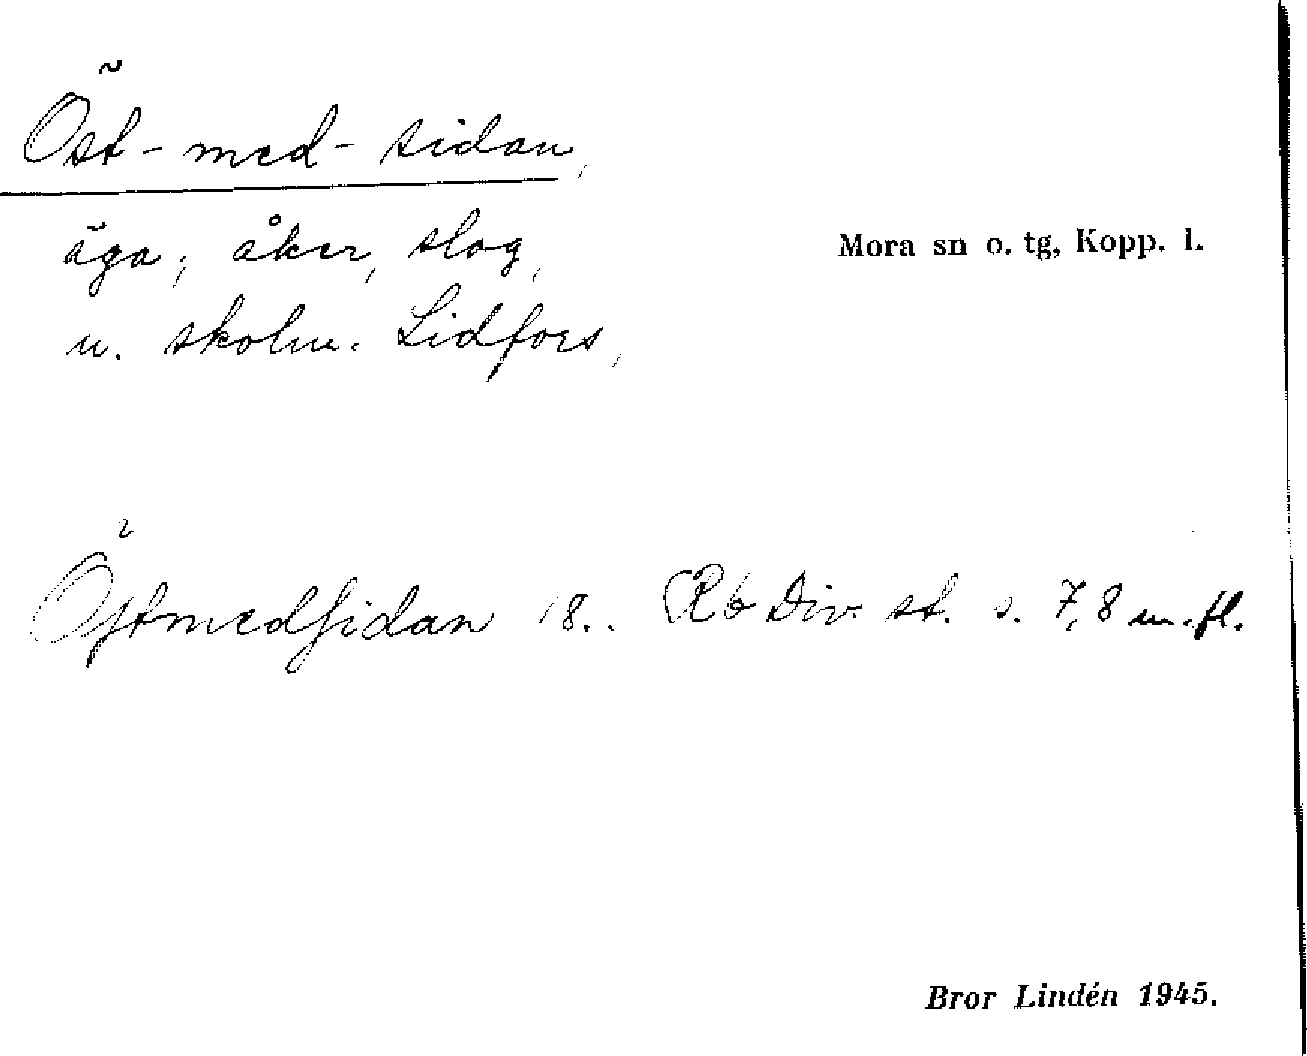 Öst-med-sidan,
äga; åker, slog,
Mora sn o. tg, Kopp. l.
u. skolm. Lidfors,
Östmedsidan 18.. Rb Div. st. s. 7,8 m.fl.
Bror Lindén 1945.